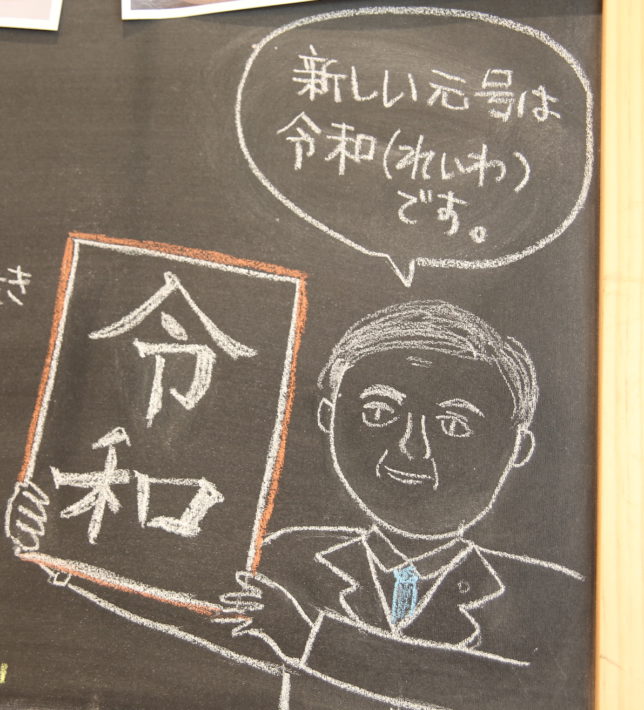 新しい元号は
令和(れいわ)
です。
令
和
き